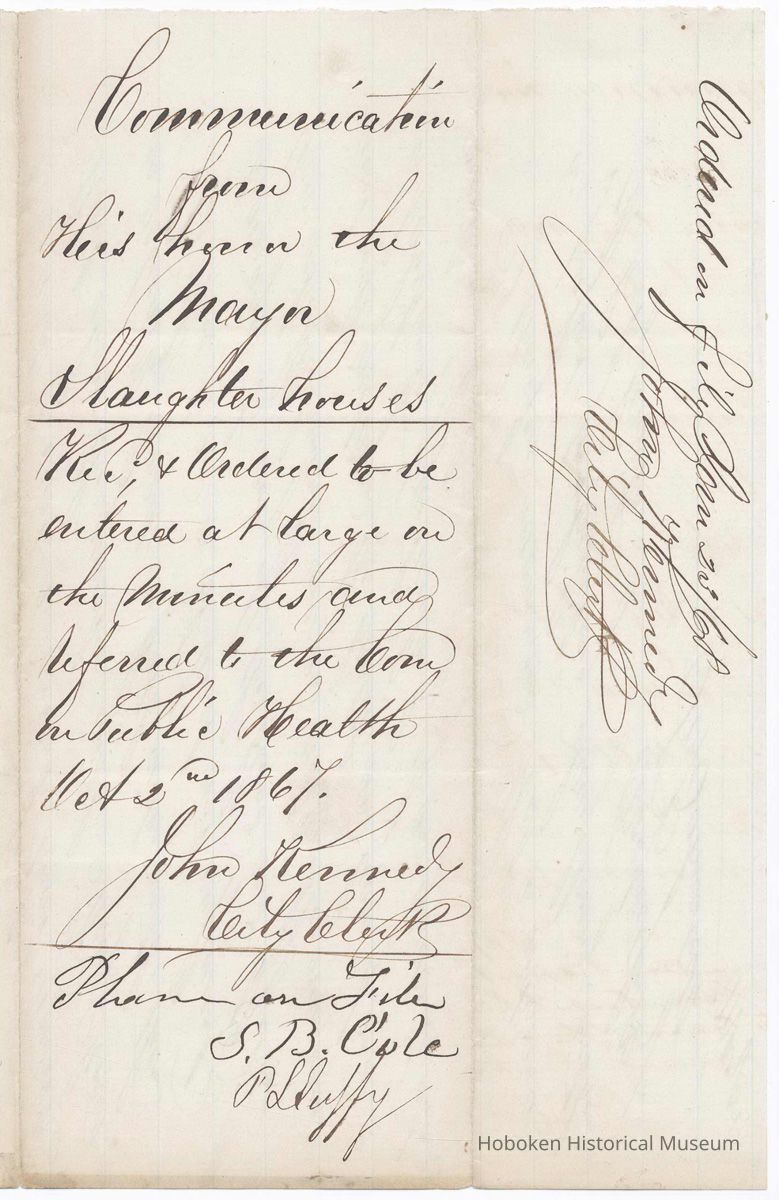 Communication
from
His honor the
Mayor
Slaughter houses
Rec'd, & Ordered to be
entered at large on
the Minutes and
referred to the Com
on Public Health
Oct 2nd 1867.
John Kennedy
City Clerk
Place on File
S. B. Cole
Duffy
Ordered on file Jan 2d 68
John Kennedy
City Clerk
Hoboken Historical Museum